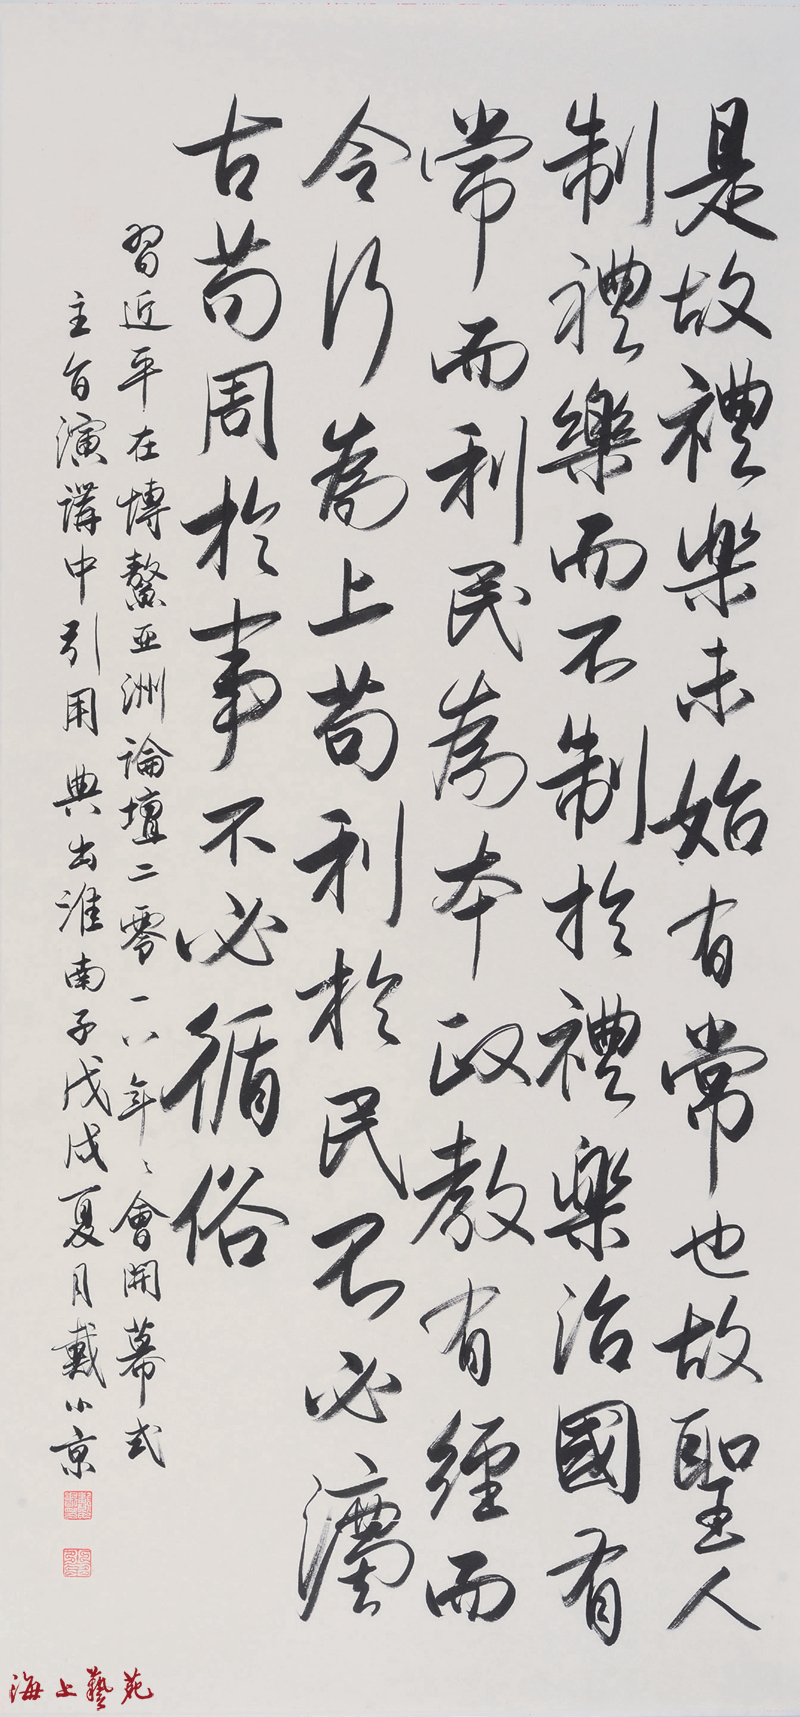 是故禮樂未始有常也故聖人
制禮樂而不制於禮樂治國有
常而利民為本政教有經而
令行為上苟利於民不必灋
古苟周於事不必循俗
習近平在博鰲亚洲論壇二零一八年年會開幕式
主旨演講中引用典出淮南子戊戌夏月戴小京
海上藝苑